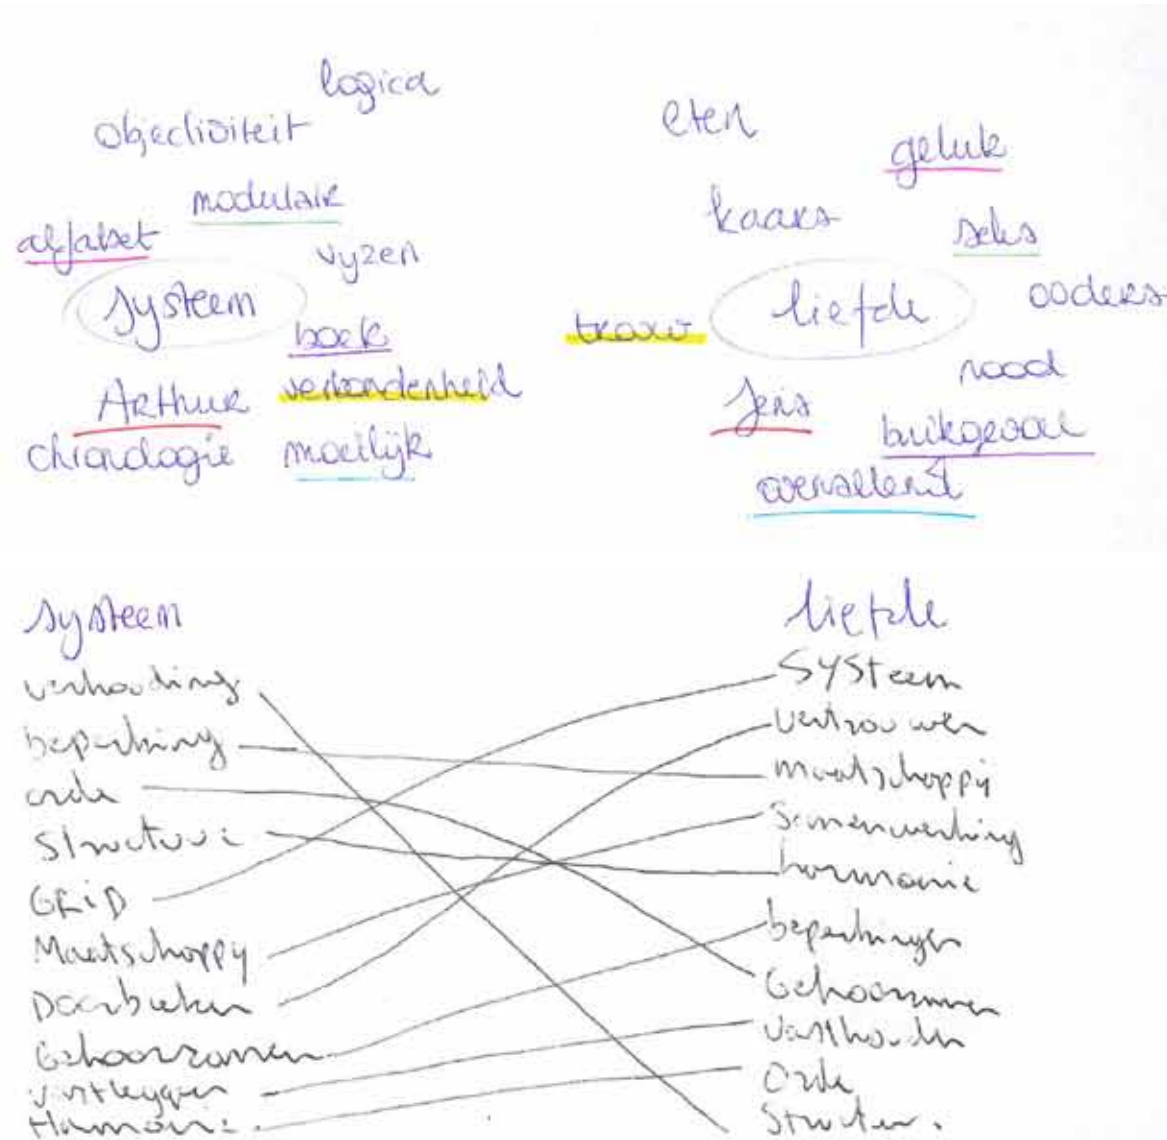 logica
objectiviteit
modulair
alfabet
vyzen
systeem
boek
Arthur
verbondenheid
chronologie
moeilijk
eten
geluk
kaars
seks
liefde
ooders
trouw
rood
Jens
buikgevoel
overvallend
systeem
verhouding
beperking
orde
Structuur
GRiD
Maatschappy
Doorbreken
Gehoorzamen
vastleggen
Harmonie
liefde
SYSteem
vertrouwen
maatschappy
Samenwerking
harmonie
beperkingen
Gehoorzamen
vasthouden
Orde
Structuur